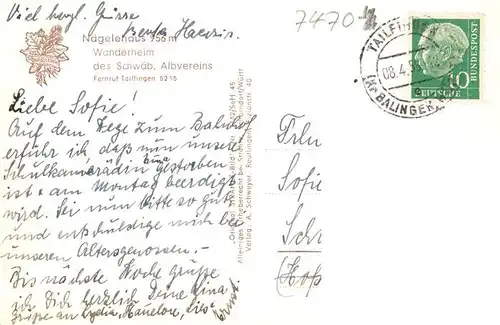 Viel herzl. Grüsse
7470
Nägelehaus 956 m
Wanderheim
des Schwäb. Albvereins
Fernruf Tailfingen 5215
TAILFIN
08.4.
(Kr BALINGEN
DEUTSCHE
BUNDESPOST
10
Liebe Sofie!
Auf dem Wege zum Bahnhof
erfuhr ich, daß nun unsere
Schulkamerädin gestorben
ist u. am Montag beerdigt
wird. Sei nun bitte so gut
und entschuldige mich bei
unseren Altersgenossen. -
Bis nächste Woche grüße
ich Dich herzlich Deine Lina
Grüße an Lydia, Hanelore,
Ernst.
Verlag A. Schweyer, Reutlingen
Frln
Sofie